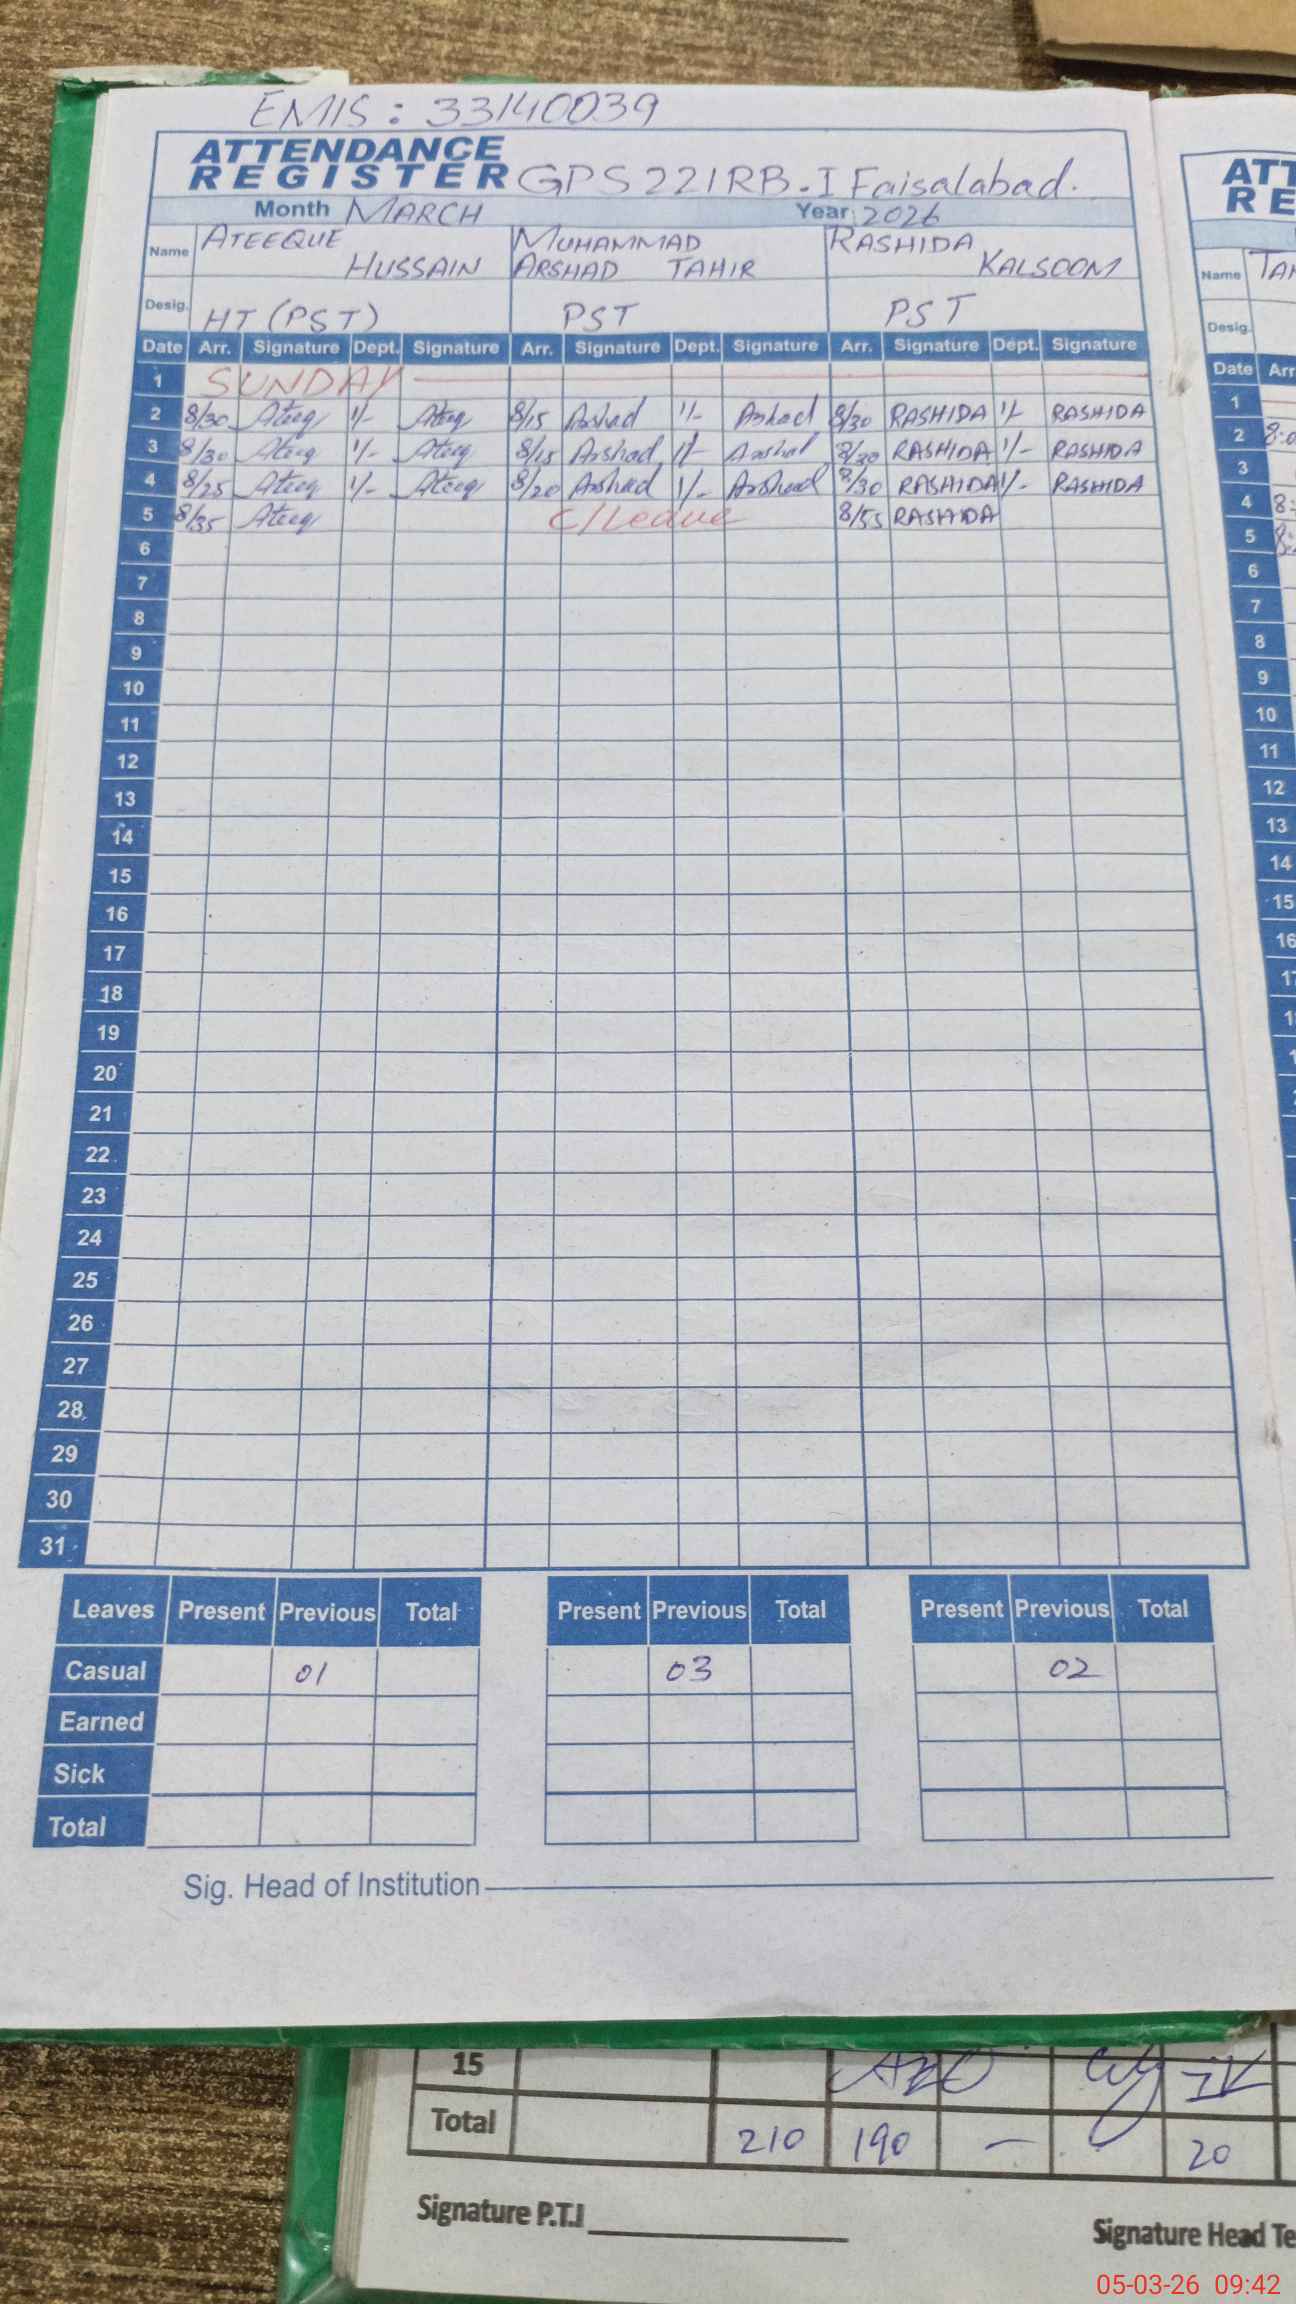 EMIS : 33140039
ATTENDANCE REGISTER GPS 221 RB-I Faisalabad.
Month MARCH Year 2026
Name ATEEQUE HUSSAIN MUHAMMAD ARSHAD TAHIR RASHIDA KALSOOM
Desig. HT (PST) PST PST
Date Arr. Signature Dept. Signature Arr. Signature Dept. Signature Arr. Signature Dept. Signature
1 SUNDAY
2 8/30 Ateeq 1/- Ateeq 8/15 Arshad 1/- Arshad 8/30 RASHIDA 1/- RASHIDA
3 8/30 Ateeq 1/- Ateeq 8/15 Arshad 1/- Arshad 8/30 RASHIDA 1/- RASHIDA
4 8/25 Ateeq 1/- Ateeq 8/20 Arshad 1/- Arshad 8/30 RASHIDA 1/- RASHIDA
5 8/35 Ateeq C/Leave 8/55 RASHIDA
6
7
8
9
10
11
12
13
14
15
16
17
18
19
20
21
22
23
24
25
26
27
28
29
30
31
Leaves Present Previous Total Present Previous Total Present Previous Total
Casual 01 03 02
Earned
Sick
Total
Sig. Head of Institution
ATT
RE
Name TAH
Desig.
Date Arr
1
2 8:0
3
4 8:
5 8:
6
7
8
9
10
11
12
13
14
15
16
17
15
Total 210 190 — 20
Signature P.T.I
Signature Head Te
05-03-26 09:42